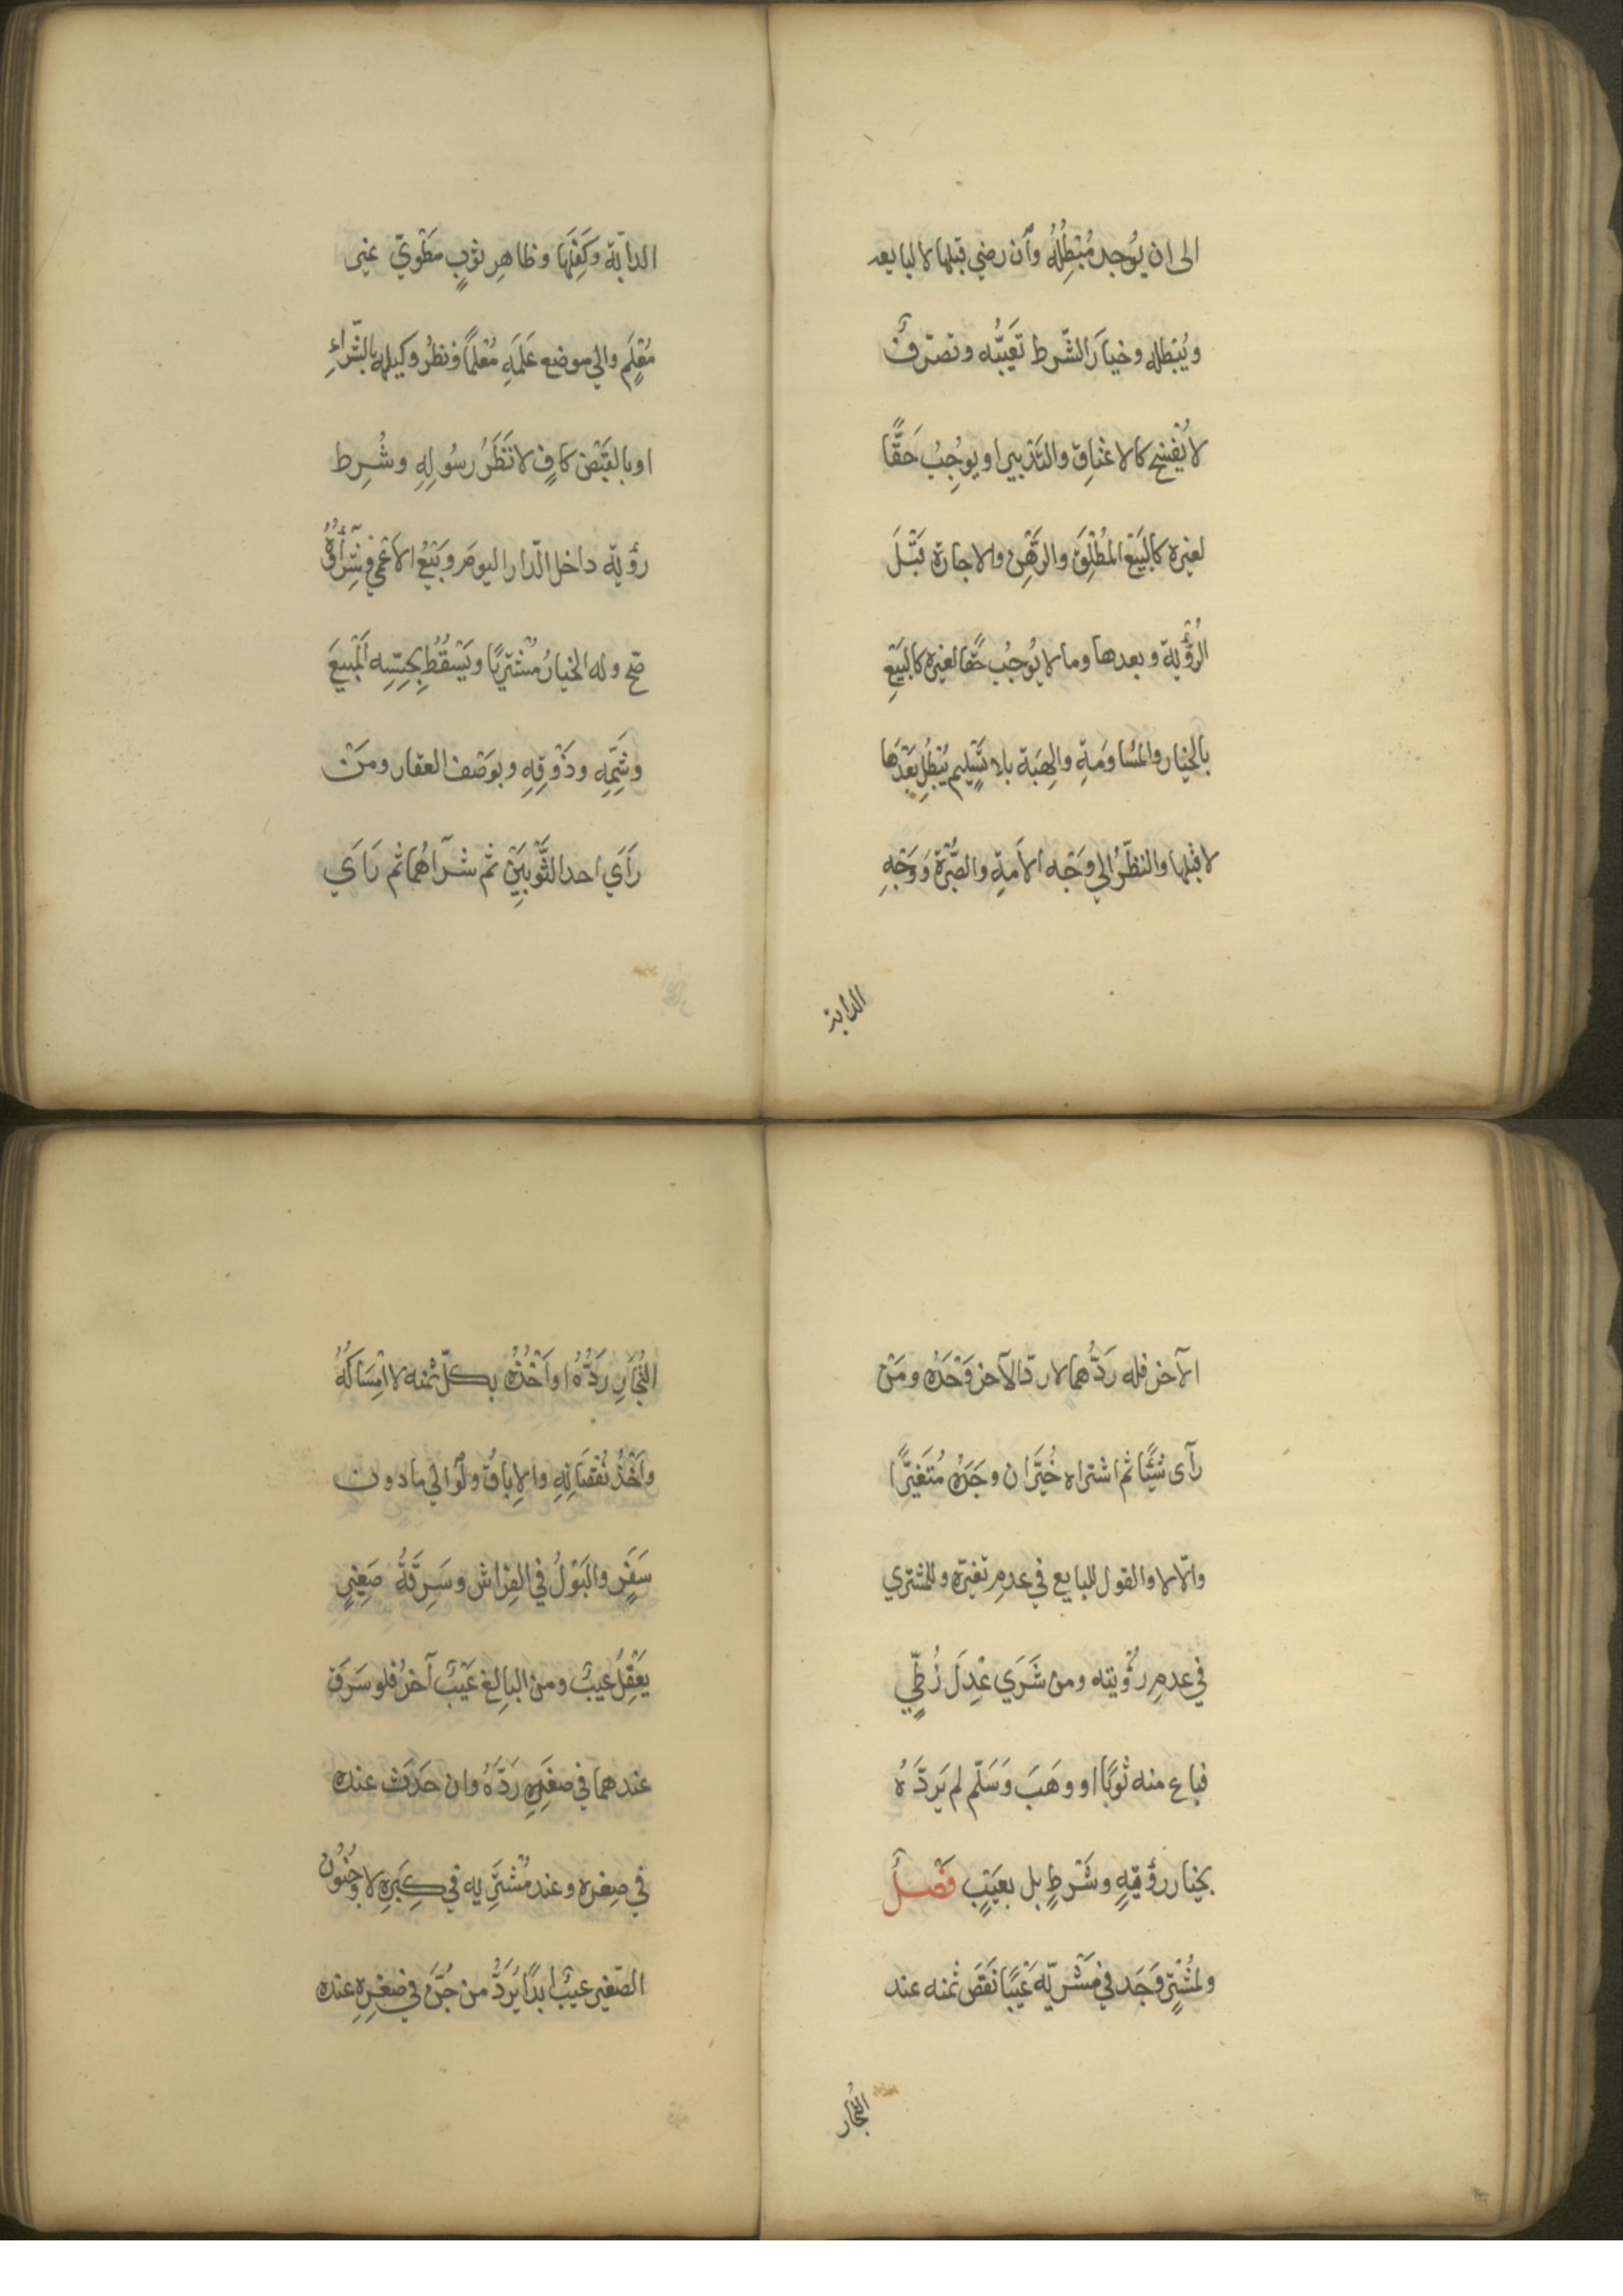 الى ان يُوجد مُبْطِلُهُ وان رضي قبلها لا لبايعه
ويُبْطله وخيارَ الشّرط تَعَيُّبُه وتصرّفٌ
لا يُفْسَخ كالاعْتاقِ والتدْبير او يوجِبُ حَقًّا
لغيره كالبَيْع المُطْلَقِ والرَّهْنِ والاجارة قَبْلَ
الرُّؤْية وبعدها وما لا يُوجبُ حقًّا لغيره كالبَيْعِ
بالخيار والمُسَاوَمَةِ والهِبَة بلا تَسْليم يُبْطِل بَعْدَها
لا قبلها والنظَرُ الي وَجْه الاَمةِ والصُّبْرَة وَوَجْهِ
الدابة
الدابّة وكَفَلِهَا وظاهِر ثوبٍ مَطْويّ غير
مُعْلَمٍ والي موضع عَلَمِهِ مُعْلَمًا ونظرُ وكيله بالشّراءِ
او بالقَبْض كافٍ لا نَظَرُ رسُولِهِ وشُرِط
رؤية داخل الدّار اليومَ وبَيْعُ الاَعْمي وشِرَاؤُهُ
صَحّ وله الخيارُ مُشْتريًا ويَسْقُطُ بجَسِّه المَبيعَ
وشَمِّهِ وذَوْقِهِ وبوَصْف العقار ومَنْ
رَأَي احد الثَّوْبَيْنِ ثم شراهُما ثم رَاَي
الآخر فله رَدُّهما لا ردّ الآخر وَحْدَهُ ومَنْ
رآى شَيْئًا ثم اشتراه خُيِّرَ ان وجَدَهُ مُتَغيِّرًا
والّا لا والقول للبايع في عدمِ تغيّره وللمشتري
في عدمِ رُؤْيته ومن شَرَي عِدْلَ زُطِّيٍ
فباع منه ثوبًا او وهَبَ وَسَلّم لم يَردَّهُ
بخيار رؤيةٍ وشَرْطٍ بل بعَيْبٍ فَصْلٌ
ولمُشْترٍ وَجَد في مَشْريّه عَيْبًا نَقَصَ ثمنه عند
التُّجَّار
التُّجَّارِ رَدُّهُ او اَخْذُهُ بكلّ ثمنه لا اِمْسَاكُهُ
واَخْذُ نُقْصَانِهِ والاِباقُ ولَوْ الي ما دون
سَفَرٍ والبَوْلُ في الفِراش وسَرِقَةُ صَغيرٍ
يَعْقِلُ عيبٌ ومن البالِغ عَيْبٌ آخرُ فلو سَرَقَ
عندهما في صغَرِهِ رَدَّهُ وان حَدَثَ عنده
في صِغره وعند مُشْتَرِيه في كِبَرِهِ لا وجُنُونُ
الصّغير عيبٌ اَبدًا يُرَدُّ من جُنَّ في صِغَرِهِ عنده